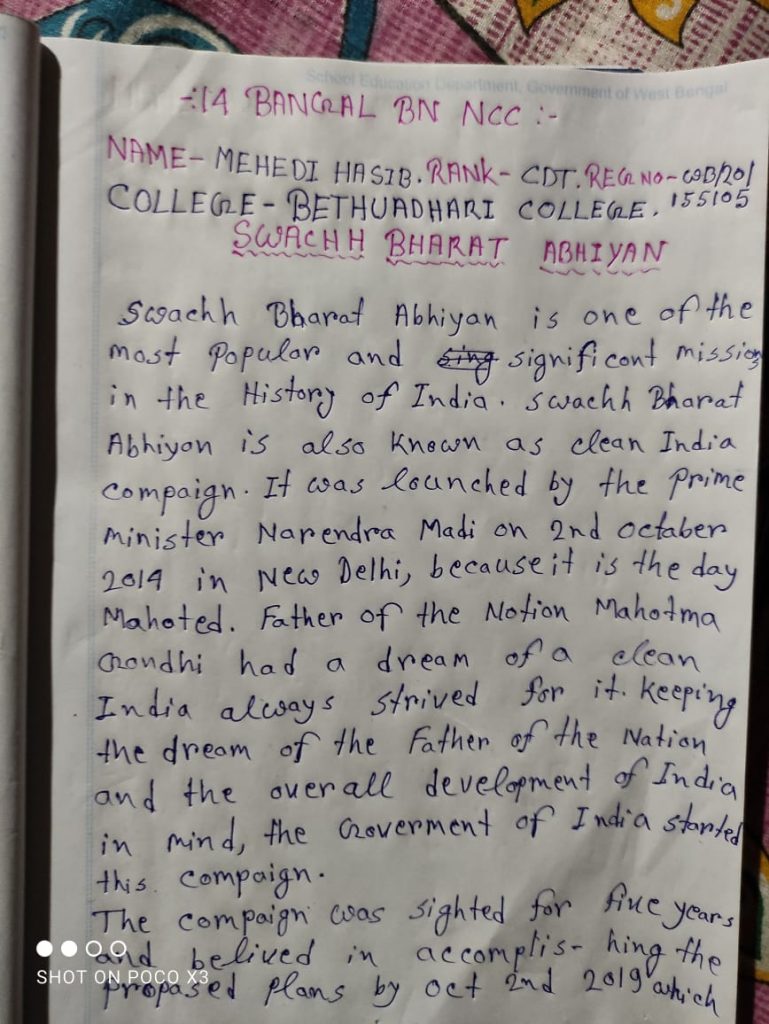 School Education Department, Government of West Bengal
-:14 BANGAL BN NCC :-
NAME- MEHEDI HASIB. RANK- CDT. REG NO- WB/20/
155105
COLLEGE- BETHUADHARI COLLEGE.
SWACHH BHARAT ABHIYAN
Swachh Bharat Abhiyan is one of the
most Popular and sing significont mission
in the History of India. Swachh Bharat
Abhiyon is also known as clean India
compaign. It was lounched by the prime
minister Narendra Madi on 2nd octaber
2014 in New Delhi, because it is the day
Mahoted. Father of the Notion Mahotma
Gondhi had a dream of a clean
India always strived for it. keeping
the dream of the Father of the Nation
and the over all development of India
in mind, the Goverment of India started
this compaign.
The compaign was sighted for five years
and belived in accomplis- hing the
propased plans by oct 2nd 2019 which
SHOT ON POCO X3